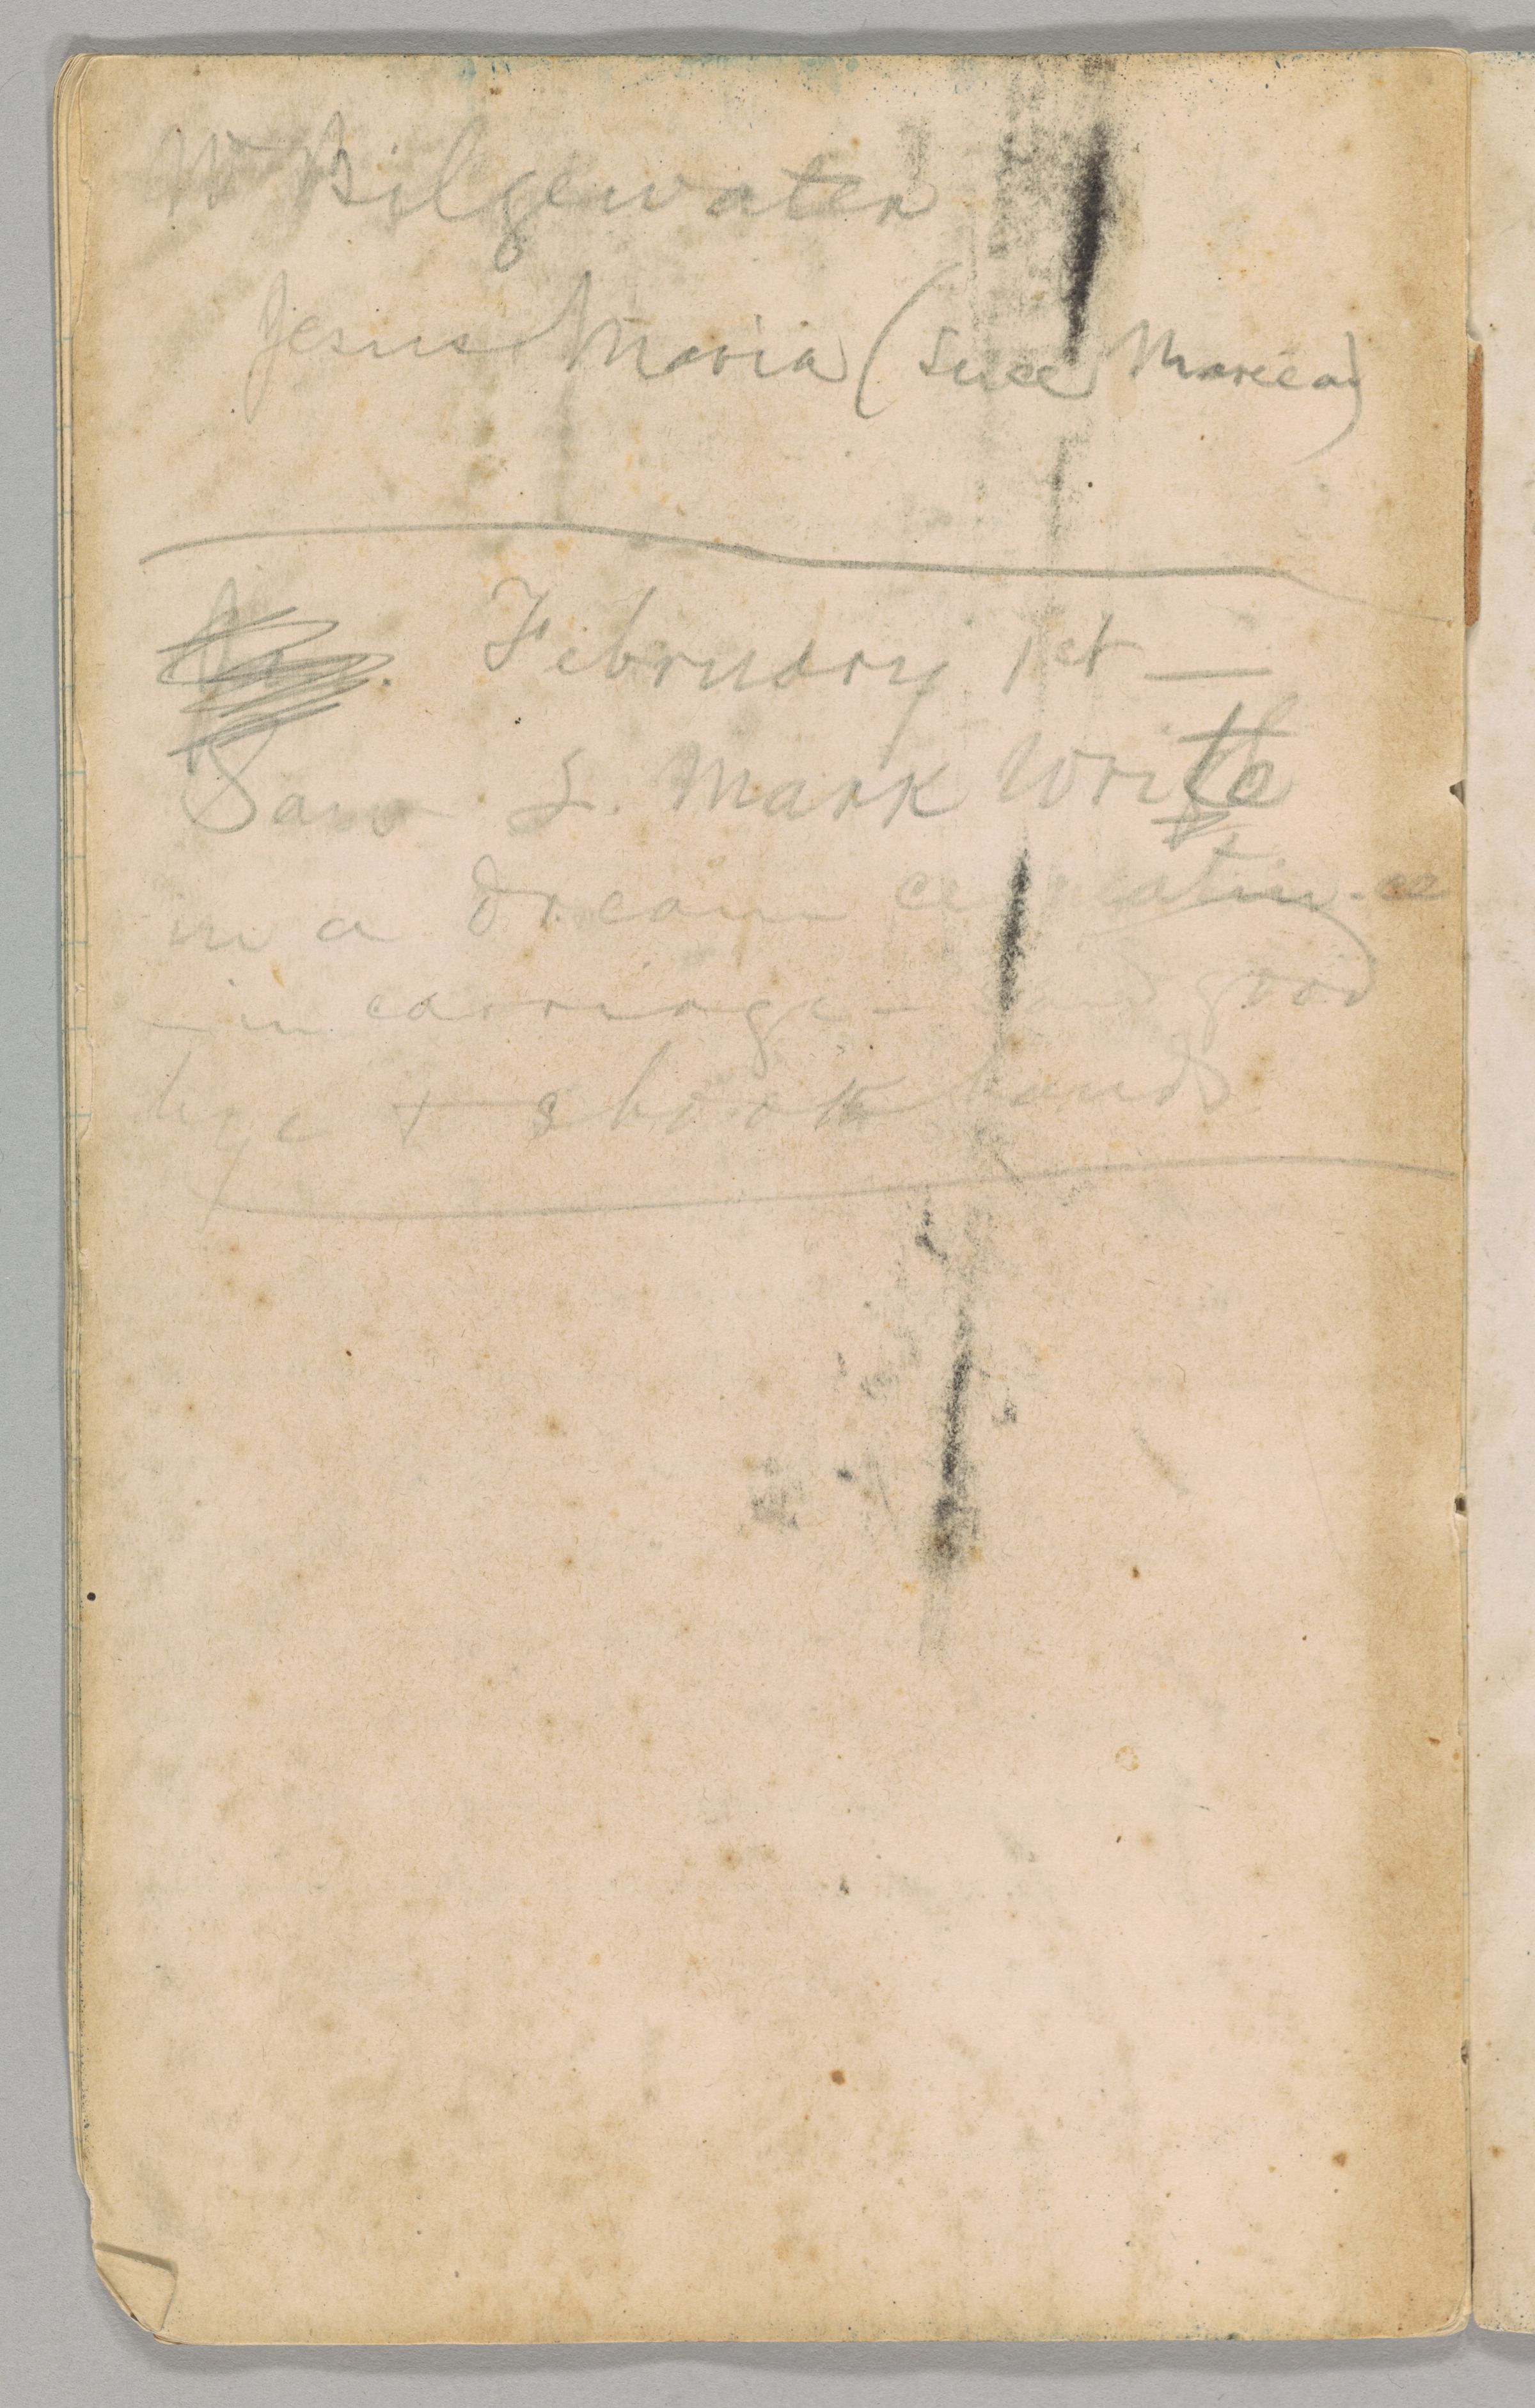 W Bilgewater
Jesus Maria (Suce Mareea)
February 1st —
Saw L. Mark Write
in a dream
— in carriage — said good
bye & shook hands